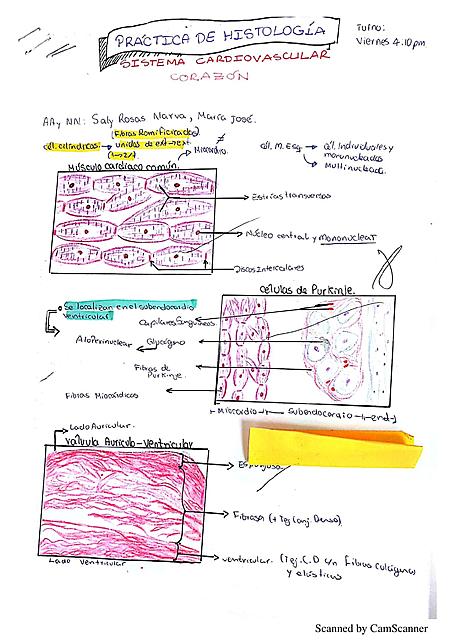 PRÁCTICA DE HISTOLOGÍA
Turno:
Viernes 4.10pm
SISTEMA CARDIOVASCULAR
CORAZÓN
AA y NN: Saly Rosas Narva, María José.
(Fibras Ramificadas)
cél. cilíndricas → unidas de ext → ext.
(1→2n)
≠
Miocardio.
cél. M. Esq → cél. Individuales y
mononucleadas
→ Multinucleada.
Músculo cardíaco común.
Estrías transversas
Núcleo central y mononuclear
Discos Intercalares
células de Purkinje.
Se localizan en el subendocardio
ventricular
Capilares Sanguíneos.
Halo Perinuclear
Glucógeno
Fibras de
Purkinje.
Fibras Miocárdicas
Miocardio
Subendocardio
end
Lado Auricular.
Válvula Aurículo-Ventricular
Esponjosa
Fibrosa (+ Tej Conj Denso)
ventricular. (Tej. C.D c/n Fibras colágenas
y elásticas
Lado Ventricular
Scanned by CamScanner